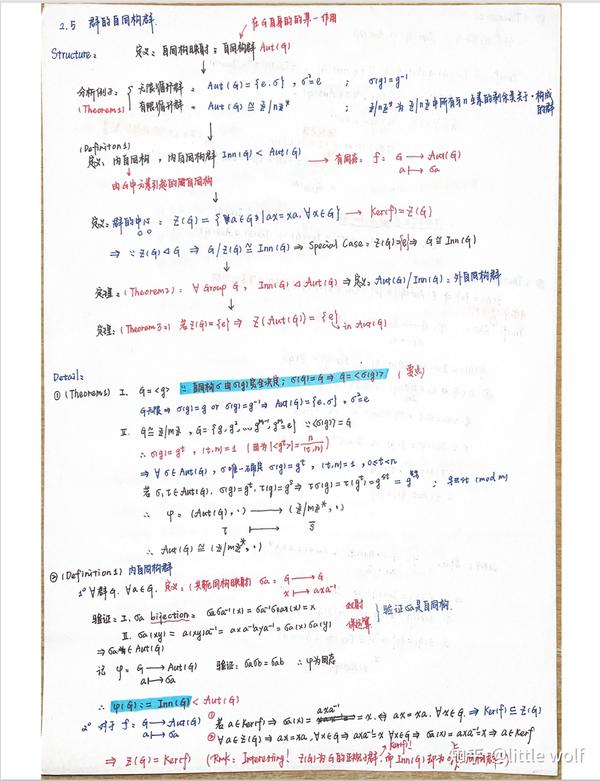 2.5 群的自同构群
在G自身的第一作用
Structure:
定义: 自同构映射; 自同构群 Aut(G)
分析例子:
(Theorem1)
无限循环群 = Aut(G)={e.σ}, σ²=e ; σ(g)=g⁻¹
有限循环群 = Aut(G)≅Z/nZ* ; Z/nZ*为Z/nZ中所有与n互素的剩余类关于·构成的群
(Definition1)
定义: 内自同构, 内自同构群 Inn(G)<Aut(G) → 有同态: f: G→Aut(G)
a↦σa
由G中元素引起的自同构
定义: 群的中心: Z(G)={a∈G|ax=xa,∀x∈G} → Ker(f)=Z(G)
⇒ ∵Z(G)◁G ⇒ G/Z(G)≅Inn(G) ⇒ Special Case: Z(G)={e}⇒ G≅Inn(G)
定理: (Theorem2): ∀ Group G, Inn(G)◁Aut(G) ⇒定义: Aut(G)/Inn(G): 外自同构群
定理: (Theorem3:) 若Z(G)={e}⇒ Z(Aut(G))={e}
in Aut(G)
Detail:
① (Theorem1) I. G=<g> ∵自同构σ由σ(g)完全决定; σ(g)=G⇒G=<σ(g)> (要点)
G无限⇒ σ(g)=g or σ(g)=g⁻¹ ⇒ Aut(G)={e.σ}, σ²=e
II. G≅Z/mZ, G={g,g²,…,gᵐ⁻¹,gᵐ=e} ∵<σ(g)>=G
∴ σ(g)=gᵗ, (t,n)=1 (因为|<gᵗ>|=n/(t,n))
⇒ ∀σ∈Aut(G), σ唯一确定 σ(g)=gᵗ, (t,n)=1, 0≤t<n
若 σ,τ∈Aut(G), σ(g)=gᵗ, τ(g)=gˢ ⇒ τσ(g)=τ(gᵗ)=gˢᵗ ; (mod m)
∴ φ: (Aut(G),·) → (Z/mZ*,·)
τ ↦ s̄
∴ Aut(G)≅(Z/mZ*,·)
② (Definition1) 内自同构群
1° ∀群G. ∀a∈G. 定义: (共轭同构映射) σa: G→G
x↦axa⁻¹
验证: I. σa bijection: σaσa⁻¹(x)=σa⁻¹σa(x)=x 双射
II. σa(xy)=a(xy)a⁻¹=axa⁻¹aya⁻¹=σa(x)σa(y) 保运算
验证σa是自同构.
⇒ σa∈Aut(G)
记 φ: G→Aut(G) 验证: σaσb=σab ∴φ为同态
a↦σa
∴ φ(G):=Inn(G)<Aut(G)
2° 对于 f: G→Aut(G)
a↦σa
① 若a∈Ker(f)⇒ σa(x)=axa⁻¹=x.⇔ ax=xa. ∀x∈G.⇒ Ker(f)⊆Z(G)
② ∀a∈Z(G)⇒ ax=xa. ∀x∈G⇒ axa⁻¹=x ∀x∈G⇒ σa(x)=axa⁻¹=x⇒ a∈Kerf
⇒ Z(G)=Kerf (Rmk: Interesting! Z(G)为G的正规子群.
Ker(f)
知乎 @little wolf